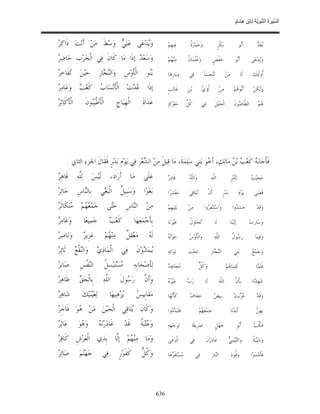 السِّيرَةُ النَّبَوِيَّةُ لابْنِ هِشَامٍ
يُعَدُّ أَبُو بَكْرٍ وَحَمْزَةُ فِيهِمُ وَيُدْعَى عَلِيٌّ وَسْطَ مَنْ أَنْتَ ذَاكِرُ
وَيُدْعَى أَبُو حَفْصٍ وَعُثْمَانُ مِنْهُمُ وَسَعْدٌ إِذَا مَا كَانَ فِي الْحَرْبِ حَاضِرُ
أُولَئِكَ لَا مَنْ نَتَّجَتْ فِي دِيَارِهَا بَنُو الْأَوْسِ وَالنَّجَّارِ حِيْنَ تُفَاخِرُ
وَلَكِنْ أَبُوهُمْ مِنْ لُؤَيِّ بْنِ غَالِبٍ إِذَا عُدَّتْ الْأَنْسَابُ كَعْبٌ وَعَامِرُ
هُمْ الطَّاعِنُونَ الْخَيْلَ فِي كُلِّ مَعْرَكٍ غَدَاةَ الْهِيَاجِ الْأَطْيَبُونَ الْأَكَاثِرُ
فَأَجَابَهُ كَعْبُ بْنُ مَالِكٍ، أَخُو بَنِي سَلِمَةَ، مَا قِيلَ مِنْ الشِّعْرِ فِي يَوْمِ بَدْرٍ فَقَالَ الجزء الثاني
عَجِبْتُ لِأَمْرِ اللَّهِ وَاللَّهُ قَادِرُ عَلَى مَا أَرَادَ، لَيْسَ لِلَّهِ قَاهِرُ
قَضَى يَوْمَ بَدْرٍ أَنْ نُلَاقِيَ مَعْشَرًا بَغَوْا وَسَبِيلُ الْبَغْيِ بِالنَّاسِ جَائِرُ
وَقَدْ حَشَدُوا وَاسْتَنْفَرُوا مَنْ يَلِيهِمْ مِنْ النَّاسِ حَتَّى جَمْعُهُمْ مُتَكَاثِرُ
وَسَارَتْ إِلَيْنَا لَا تُحَاوِلُ غَيْرَنَا بِأَجْمَعِهَا كَعْبٌ جَمِيعًا وَعَامِرُ
وَفِينَا رَسُولُ اللَّهِ وَالْأَوْسُ حَوْلَهُ لَهُ مَعْقِلٌ مِنْهُمْ عَزِيزٌ وَنَاصِرُ
وَجَمْعُ بَنِي النَّجَّارِ تَحْتَ لِوَائِهِ يُمَشَّوْنَ فِي الْمَاذِيِّ وَالنَّقْعُ ثَائِرُ
فَلَمَّا لَقِينَاهُمْ وَكُلٌّ مُجَاهِدٌ لِأَصْحَابِهِ مُسْتَبْسِلُ النَّفْسِ صَابِرُ
شَهِدْنَا بِأَنَّ اللَّهَ لَا رَبَّ غَيْرُهُ وَأَنَّ رَسُولَ اللَّهِ بِالْحَقِّ ظَاهِرُ
وَقَدْ عُرِّيَتْ بِيضٌ خِفَافٌ كَأَنَّهَا مَقَابِيسُ يُزْهِيهَا لِعَيْنَيْكَ شَاهِرُ
بِهِنَّ أَبَدْنَا جَمْعَهُمْ فَتَبَدَّدُوا وَكَانَ يُلَاقِي الْحَيْنَ مَنْ هُوَ فَاجِرُ
فَكُبَّ أَبُو جَهْلٍ صَرِيعًا لِوَجْهِهِ وَعُتْبَةُ قَدْ غَادَرْنَهُ وَهُوَ عَاثِرُ
وَشَيْبَةُ وَالتَّيْمِيَّ غَادَرْنَ فِي الْوَغَى وَمَا مِنْهُمْ إِلَّا بِذِي الْعَرْشِ كَافِرُ
فَأَمْسَوْا وَقُودَ النَّارِ فِي مُسْتَقَرِّهَا وَكُلُّ كَفُورٍ فِي جَهَنَّمَ صَائِرُ
636